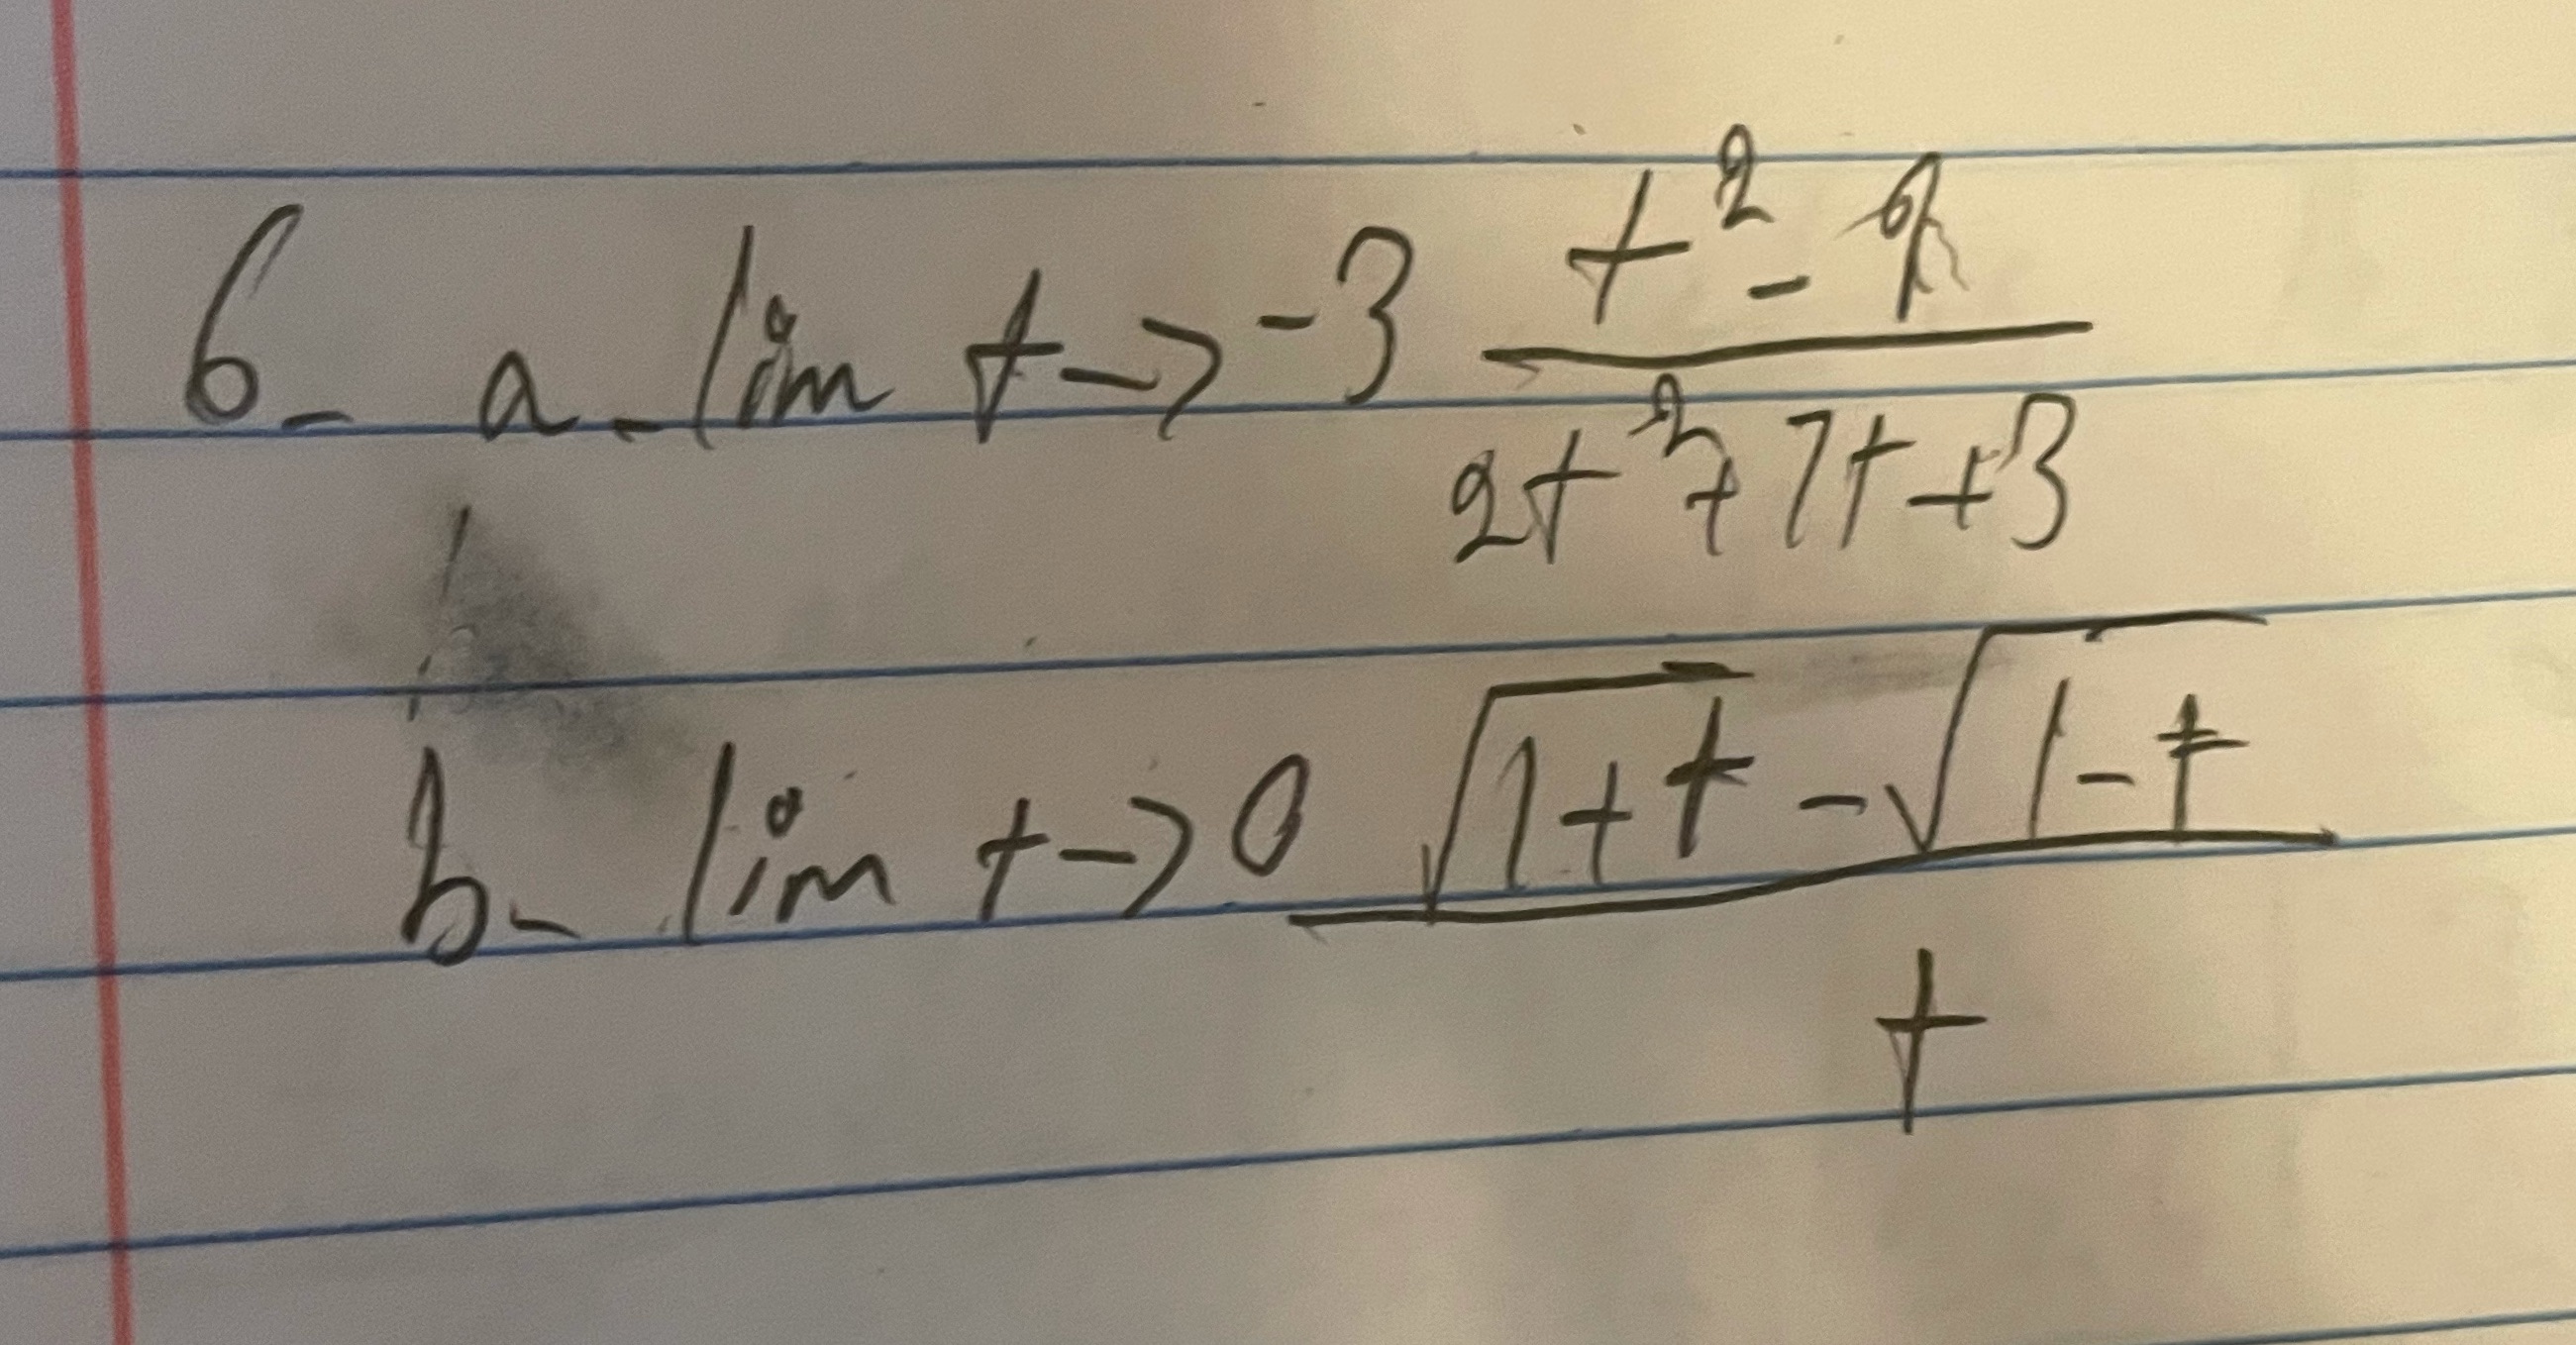 6- a- lim t->-3 (t² - 9)/(2t² + 7t + 3)
b- lim t->0 (√(1+t) - √(1-t))/t